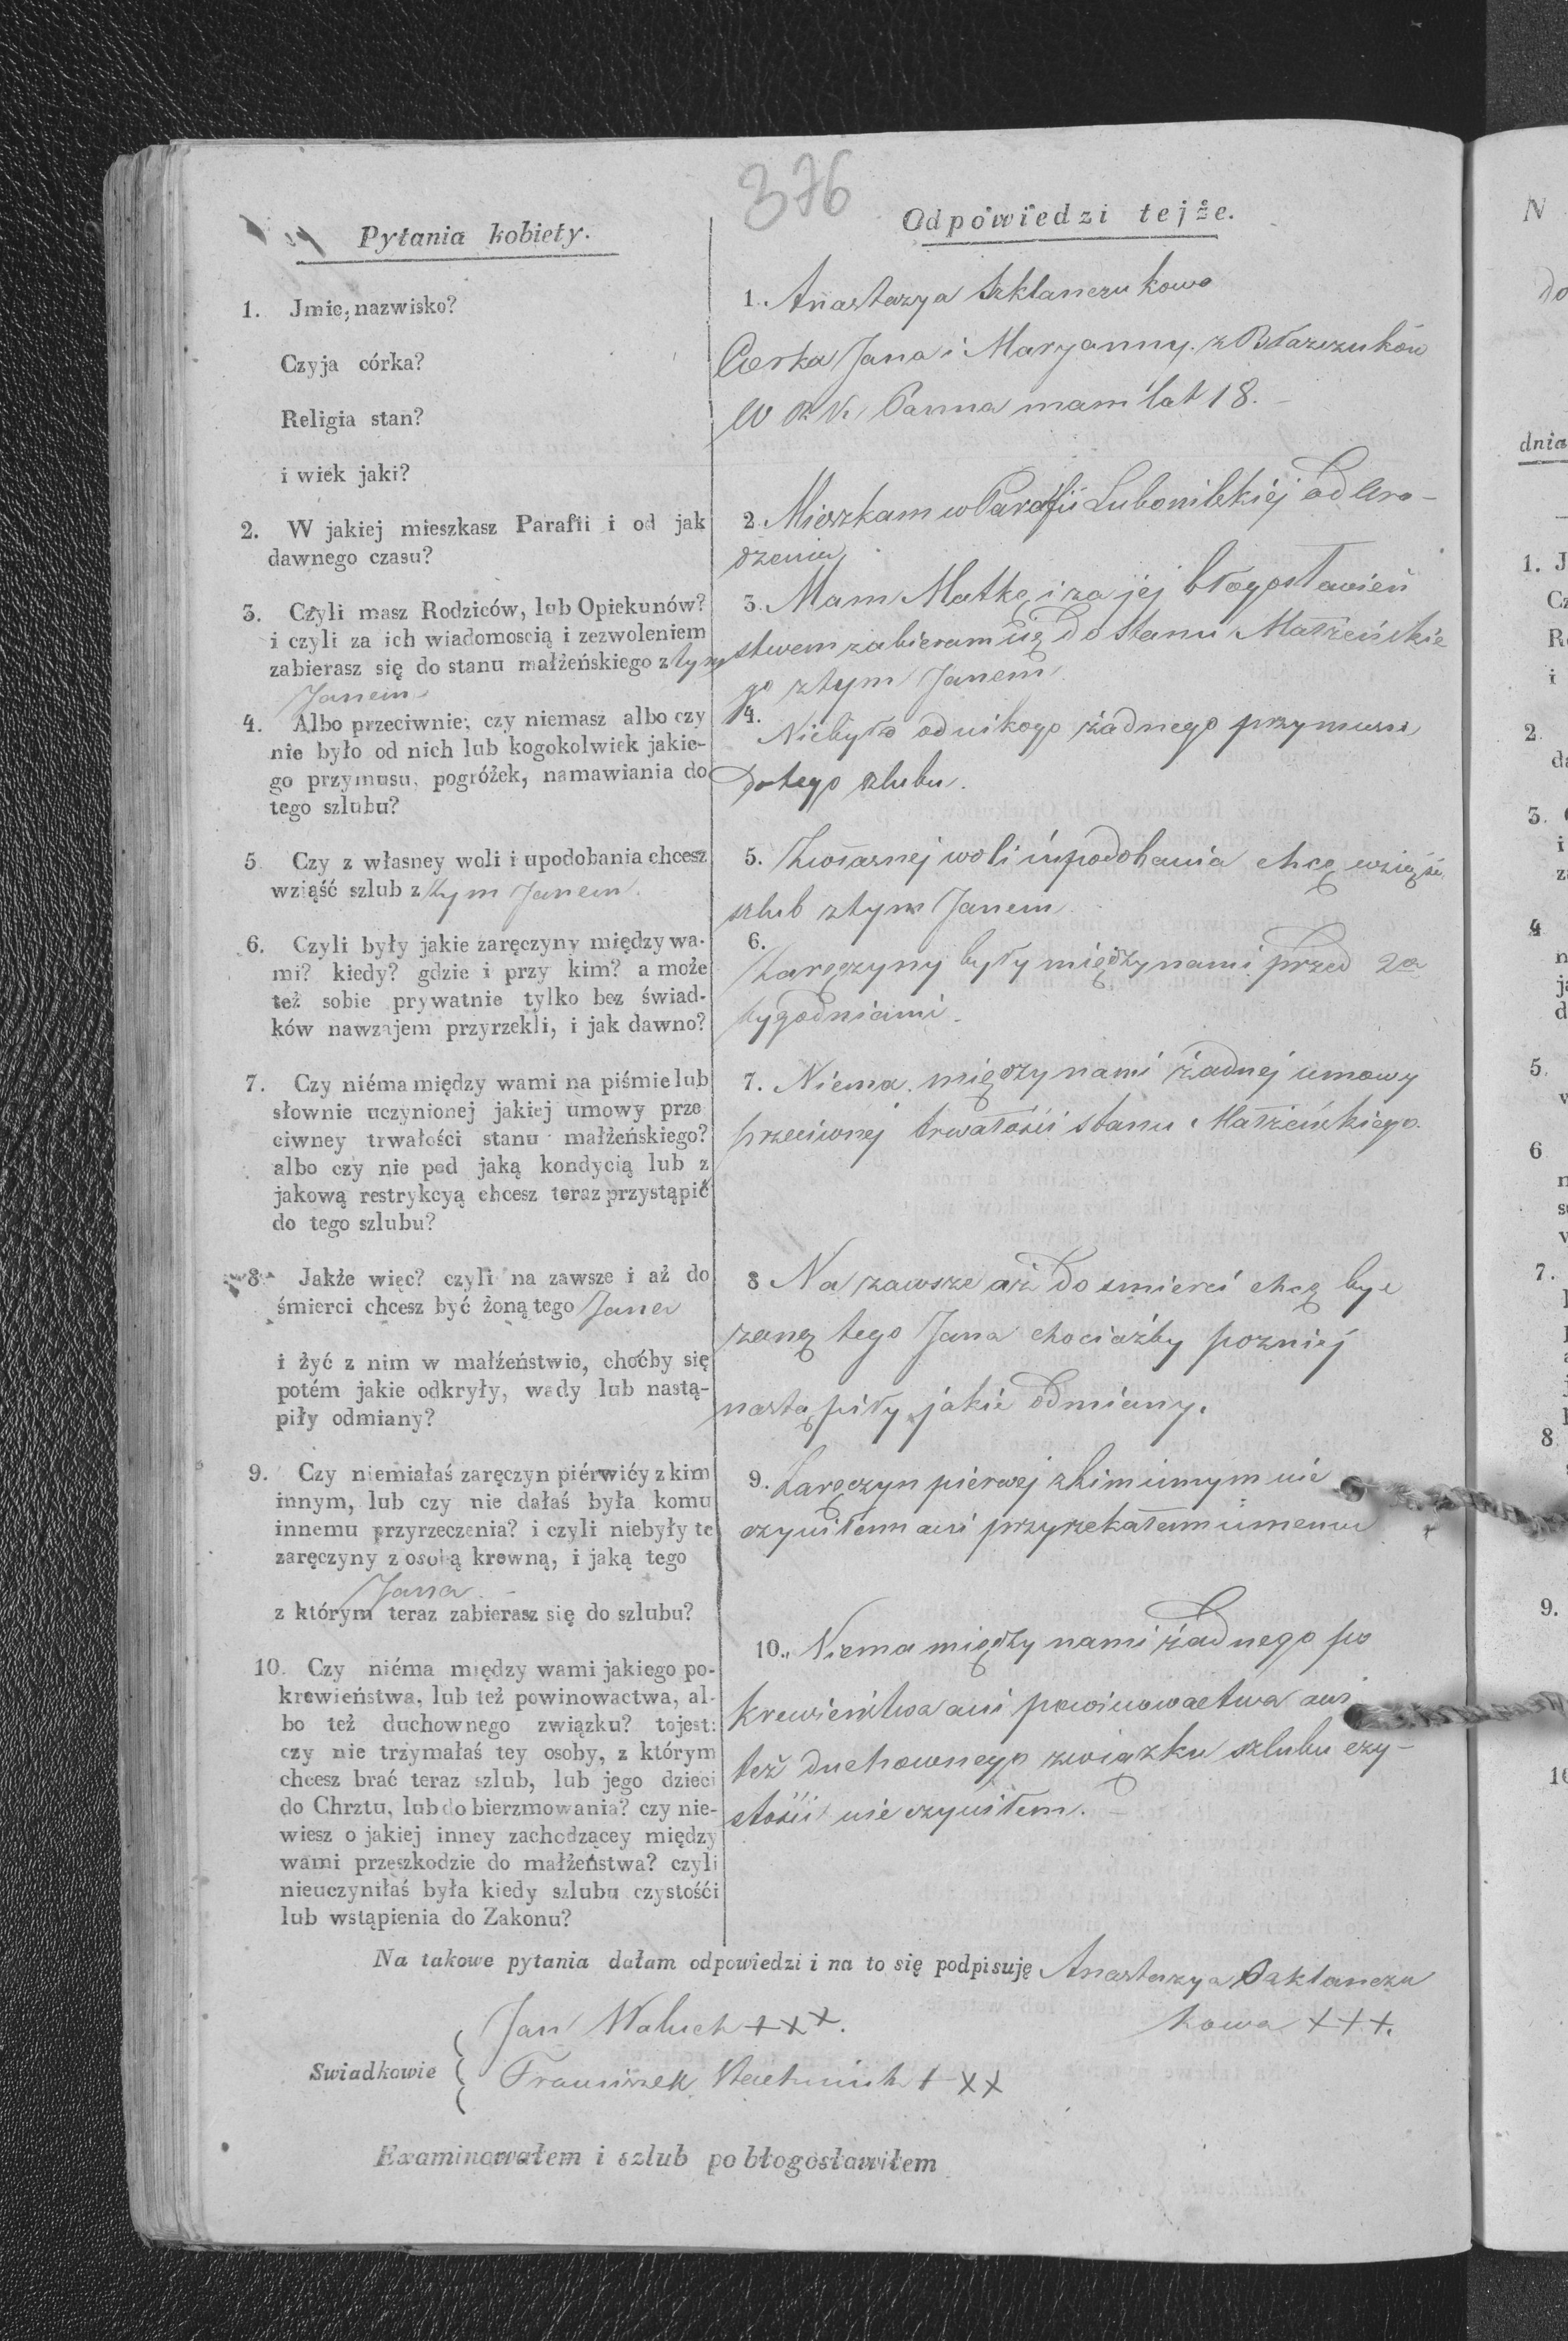 376
Pytania kobiety.
Odpowiedzi tejże.
1. Jmie, nazwisko?
Czyja córka?
Religia stan?
i wiek jaki?
1. Anastazya Szklanczukowa
Corka Jana i Maryanny z Błaszczuków
W R K Panna mam lat 18. –
2. W jakiej mieszkasz Parafii i od jak
dawnego czasu?
2. Mieszkam w Parafii Lubomilskiéj od Uro-
dzenia
3. Czyli masz Rodziców, lub Opiekunów?
i czyli za ich wiadomoscią i zezwoleniem
zabierasz się do stanu małżeńskiego z tym
Janem
3. Mam Matkę i za jéj błogosławień
stwem zabieram się do stanu Małżeńskie
go z tym Janem
4. Albo przeciwnie, czy niemasz albo czy
nie było od nich lub kogokolwiek jakie-
go przymusu, pogróżek, namawiania do
tego szlubu?
4. Niebyło od nikogo żadnego przymusu
do tego szlubu.
5. Czy z własney woli i upodobania chcesz
wziąść szlub z tym Janem.
5. Zwłasnej woli iupodobania chcę wziąść
szlub z tym Janem
6. Czyli były jakie zaręczyny między wa-
mi? kiedy? gdzie i przy kim? a może
też sobie prywatnie tylko bez świad-
ków nawzajem przyrzekli, i jak dawno?
6. Zaręczyny były międzynami przed 2a
tygodniami.
7. Czy niéma między wami na piśmie lub
słownie uczynionej jakiej umowy prze
ciwney trwałości stanu małżeńskiego?
albo czy nie pod jaką kondycią lub z
jakową restrykcyą chcesz teraz przystąpić
do tego szlubu?
7. Niema międzynami żadnéj umowy
przeciwnej trwałości stanu Małżeńskiego.
8. Jakże więc? czyli na zawsze i aż do
śmierci chcesz być żoną tego Jana
i żyć z nim w małżeństwie, choćby się
potém jakie odkryły, wady lub nastą-
piły odmiany?
8 Na zawsze aż do smierci chcę byc
zoną tego Jana chociażby pozniéj
nastąpiły jakie odmiany.
9. Czy niemiałaś zaręczyn piérwiéy z kim
innym, lub czy nie dałaś była komu
innemu przyrzeczenia? i czyli niebyły te
zaręczyny z osobą krewną, i jaką tego
Jana
z którym teraz zabierasz się do szlubu?
9. Zaręczyn pierwej zkim innym nie
czyniłem ani przyrzekałem innemu
10. Czy niéma między wami jakiego po-
krewieństwa, lub też powinowactwa, al-
bo też duchownego związku? tojest:
czy nie trzymałaś tey osoby, z którym
chcesz brać teraz szlub, lub jego dzieci
do Chrztu, lub do bierzmowania? czy nie-
wiesz o jakiej inney zachodzącey między
wami przeszkodzie do małżeństwa? czyli
nieuczyniłaś była kiedy szlubu czystośći
lub wstąpienia do Zakonu?
10. Niema między nami żadnego po
krewieństwa ani powinowactwa ani
też duchownego związku szlubu czy-
stości nie czyniłem. –
Na takowe pytania dałam odpowiedzi i na to się podpisuję Anastazya Szklanczu
kowa +++.
Swiadkowie
Jan Waluch +++.
Franciszek +++
Examinowałem i szlub pobłogosławiłem
N
do
dnia
1. J
Cz
R
i
2.
da
3.
i
z
4
n
j
d
5.
v
6
n
s
v
7.
8
9.
10